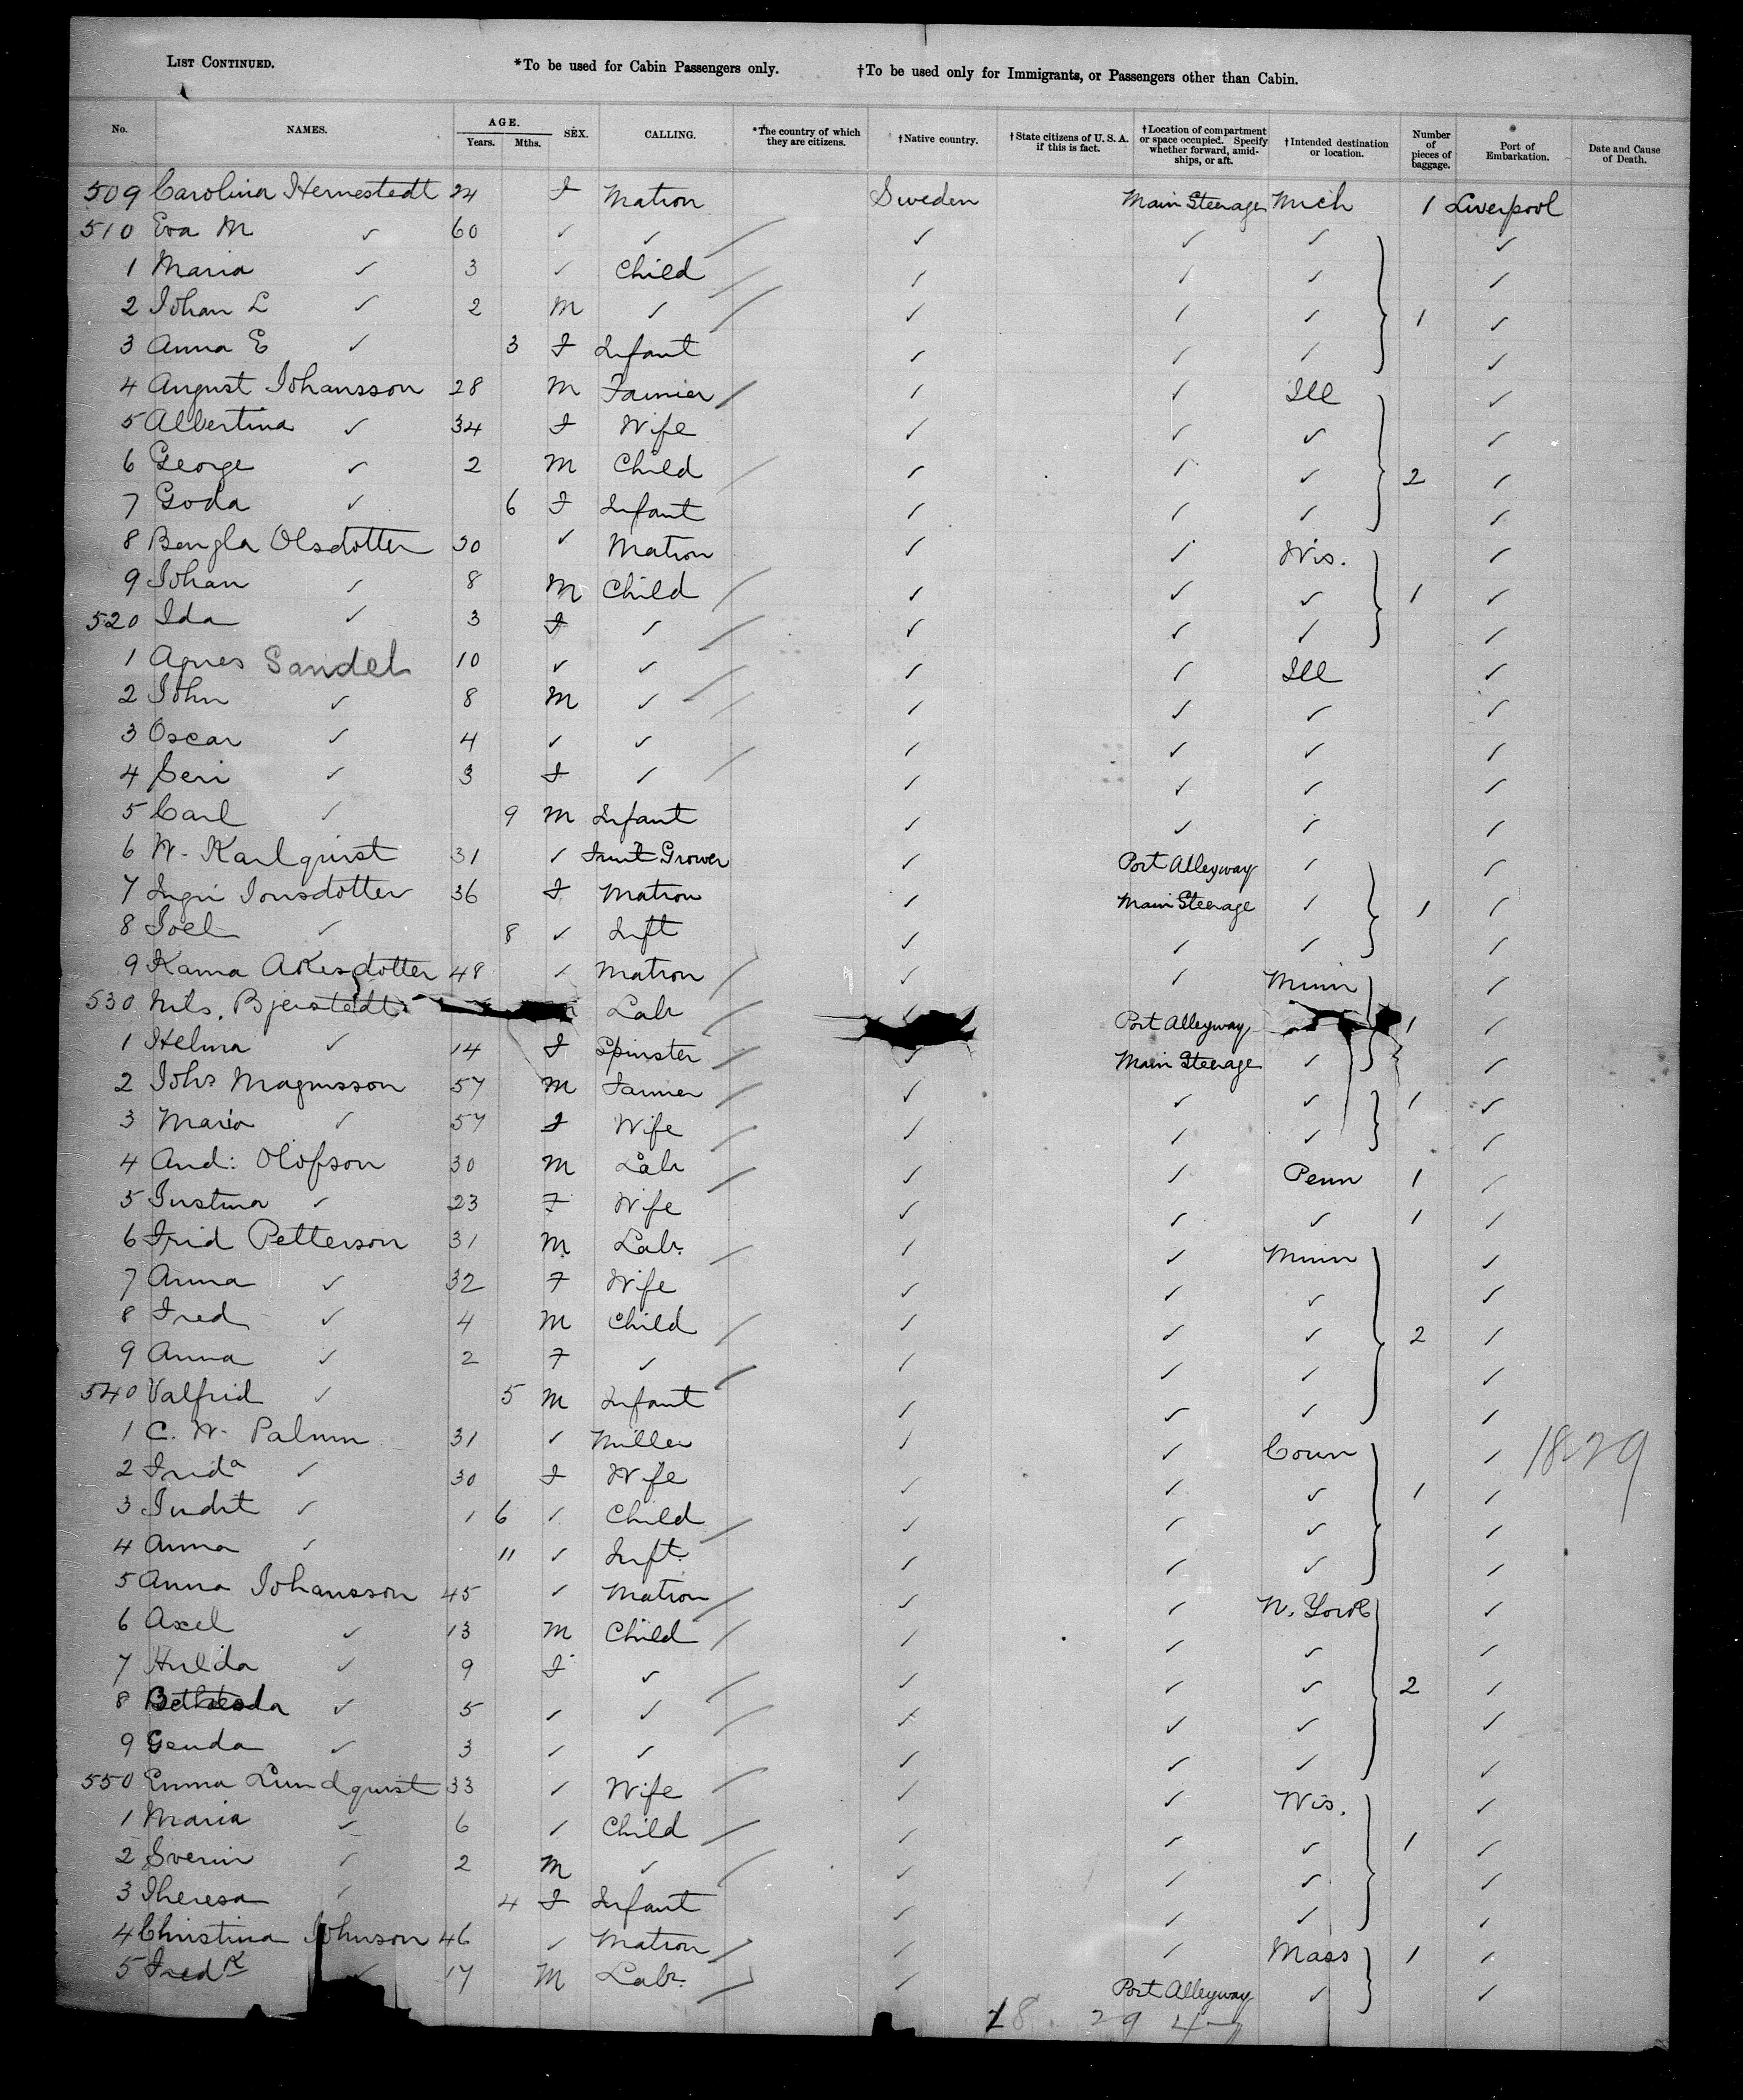 LIST CONTINUED. *To be used for Cabin Passengers only. †To be used only for Immigrants, or Passengers other than Cabin.
No. NAMES. AGE. Years. Mths. SEX. CALLING. *The country of which they are citizens. †Native country. †State citizens of U. S. A. if this is fact. †Location of compartment or space occupied. Specify whether forward, amidships, or aft. †Intended destination or location. Number of pieces of baggage. Port of Embarkation. Date and Cause of Death.
509 Carolina Hernestedt 24 F Matron Sweden Main Steerage Mich 1 Liverpool
510 Eva M ✓ 60 ✓ ✓ ✓ ✓ ✓ ✓
1 Maria ✓ 3 ✓ Child ✓ ✓ ✓ ✓
2 Johan L ✓ 2 M ✓ ✓ ✓ ✓ 1 ✓
3 Anna E ✓ 3 F Infant ✓ ✓ ✓ ✓
4 August Johansson 28 M Farmer ✓ ✓ Ill ✓
5 Albertina ✓ 34 F Wife ✓ ✓ ✓ ✓
6 George ✓ 2 M Child ✓ ✓ ✓ 2 ✓
7 Goda ✓ 6 F Infant ✓ ✓ ✓ ✓
8 Bengla Olsdotter 30 ✓ Matron ✓ ✓ Wis. ✓
9 Johan ✓ 8 M Child ✓ ✓ ✓ 1 ✓
520 Ida ✓ 3 F ✓ ✓ ✓ ✓ ✓
1 Agnes Sandel 10 ✓ ✓ ✓ ✓ Ill ✓
2 John ✓ 8 M ✓ ✓ ✓ ✓ ✓
3 Oscar ✓ 4 ✓ ✓ ✓ ✓ ✓ ✓
4 Seri ✓ 3 F ✓ ✓ ✓ ✓ ✓
5 Carl ✓ 9 M Infant ✓ ✓ ✓ ✓
6 W. Karlquist 31 ✓ Fruit Grower ✓ Port Alleyway ✓ ✓
7 Ingri Jonsdotter 36 F Matron ✓ Main Steerage ✓ 1 ✓
8 Joel ✓ 8 ✓ Inft ✓ ✓ ✓ ✓
9 Kama Akesdotter 48 ✓ Matron ✓ ✓ Minn ✓
530 Nils. Bjerstedt Lab ✓ Port Alleyway 1 ✓
1 Helma ✓ 14 F Spinster ✓ Main Steerage ✓ ✓
2 Johs Magnusson 57 M Farmer ✓ ✓ ✓ 1 ✓
3 Maria ✓ 57 F Wife ✓ ✓ ✓ ✓
4 And: Olofson 30 M Lab ✓ ✓ Penn 1 ✓
5 Justina ✓ 23 F Wife ✓ ✓ ✓ 1 ✓
6 Frid Petterson 31 M Lab. ✓ ✓ Minn ✓
7 Anna ✓ 32 F Wife ✓ ✓ ✓ ✓
8 Fred ✓ 4 M Child ✓ ✓ ✓ 2 ✓
9 Anna ✓ 2 F ✓ ✓ ✓ ✓ ✓
540 Valfrid ✓ 5 M Infant ✓ ✓ ✓ ✓
1 C. W. Palmm 31 ✓ Miller ✓ ✓ Conn ✓ 1829
2 Frida ✓ 30 F Wife ✓ ✓ ✓ 1 ✓
3 Judit ✓ 1 6 ✓ Child ✓ ✓ ✓ ✓
4 Anna ✓ 11 ✓ Inft. ✓ ✓ ✓ ✓
5 Anna Johansson 45 ✓ Matron ✓ ✓ N. York ✓
6 Axel ✓ 13 M Child ✓ ✓ ✓ ✓
7 Hulda ✓ 9 F ✓ ✓ ✓ ✓ 2 ✓
8 Bethesda ✓ 5 ✓ ✓ ✓ ✓ ✓ ✓
9 Genda ✓ 3 ✓ ✓ ✓ ✓ ✓ ✓
550 Emma Lundquist 33 ✓ Wife ✓ ✓ Wis. ✓
1 Maria ✓ 6 ✓ Child ✓ ✓ ✓ 1 ✓
2 Sverin ✓ 2 M ✓ ✓ ✓ ✓ ✓
3 Theresa ✓ 4 F Infant ✓ ✓ ✓ ✓
4 Christina Johnson 46 ✓ Matron ✓ ✓ Mass 1 ✓
5 Fredk ✓ 17 M Labr. ✓ Port Alleyway ✓ ✓
18. 29 4